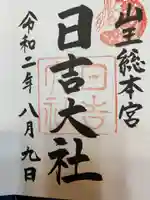 山王総本宮
日吉大社
令和二年八月九日